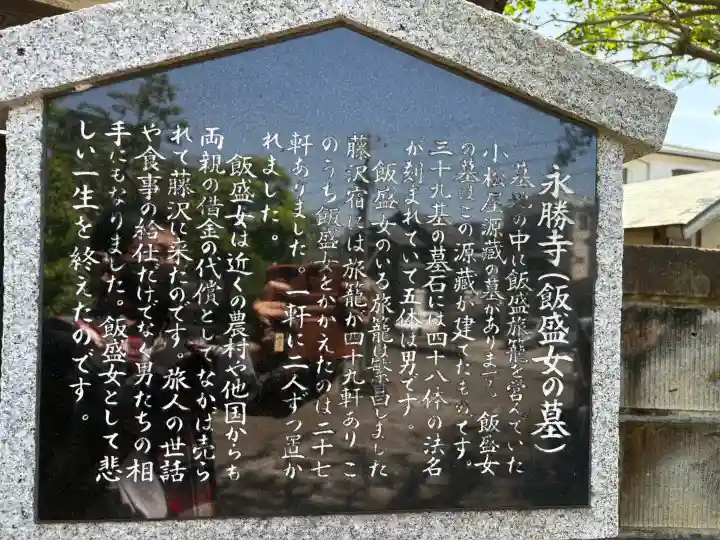 永勝寺(飯盛女の墓)
墓地の中に飯盛旅籠を営んでいた
小松屋源蔵の墓があります。飯盛女
の墓はこの源蔵が建てたものです。
三十九基の墓石には四十八体の法名
が刻まれていて五体は男です。
飯盛女のいる旅籠は繁昌しました
藤沢宿には旅籠が四十九軒ありこ
のうち飯盛女をかかえたのは二十七
軒ありました。一軒に二人ずつ置か
れました。
飯盛女は近くの農村や他国からも
両親の借金の代償としてなかば売ら
れて藤沢に来たのです。旅人の世話
や食事の給仕だけでなく男たちの相
手にもなりました。飯盛女として悲
しい一生を終えたのです。